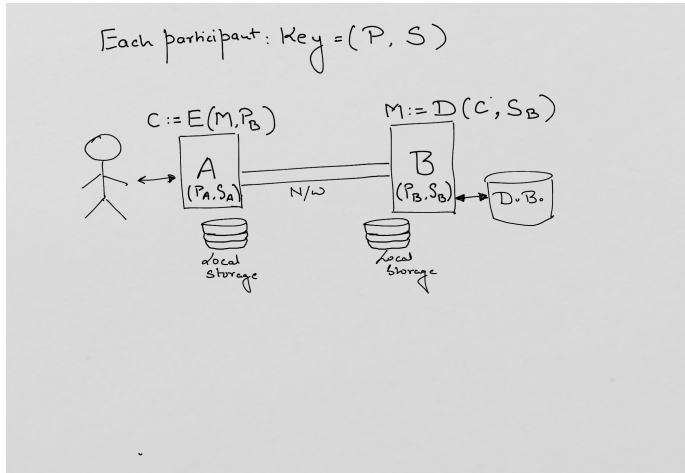 Each participant: Key = (P, S)
C := E(M, P_B)
M := D(C, S_B)
A
(P_A, S_A)
N/W
B
(P_B, S_B)
D.B.
Local
Storage
Local
Storage